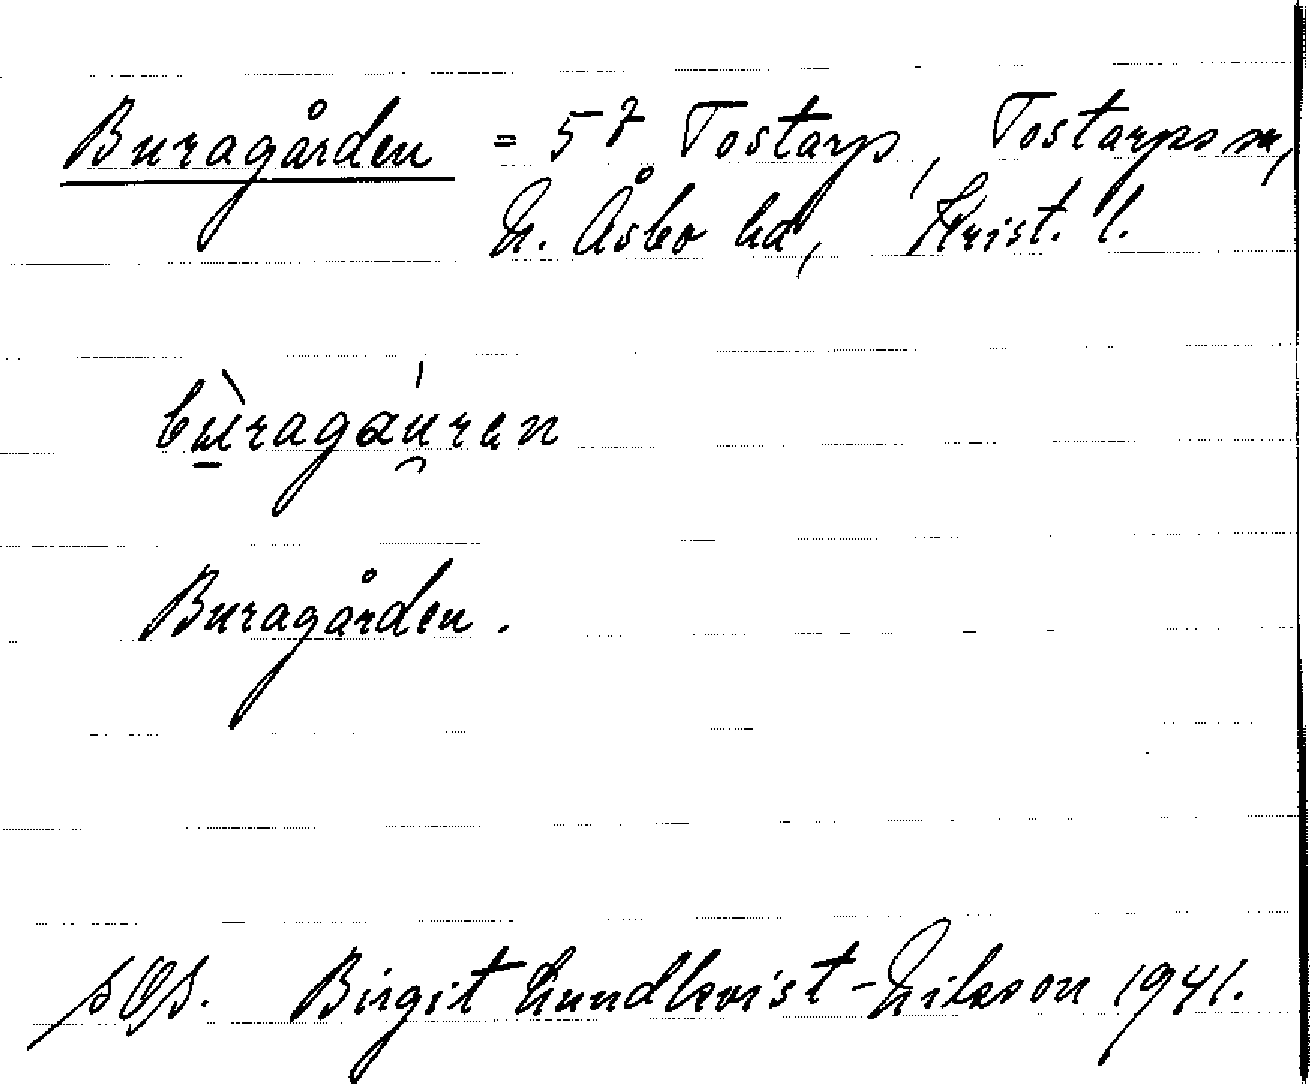 Buragården = 5² Tostarp, Tostarps sn,
N. Åsbo hd, Krist. l.
bùragáu̯rən
Buragården.
SOS. Birgit Lundkvist-Nilsson 1941.